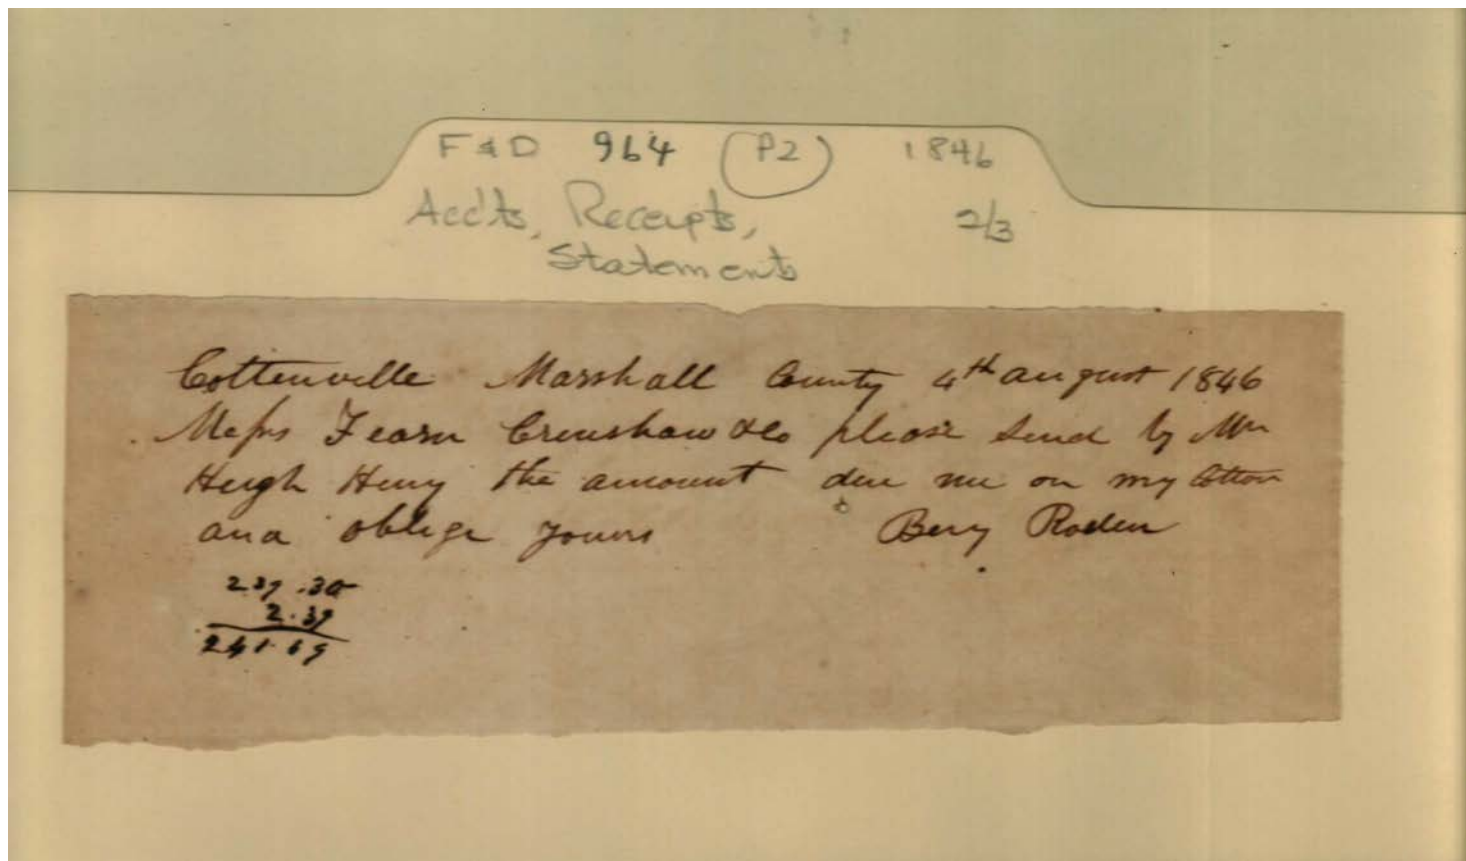 F & D 964 (P2) 1846
Acc'ts, Receipts, 2/3
Statements
Cottenville Marshall County 4th august 1846
Messrs Fearn Crenshaw & Co please send by Mr
Hugh Henry the amount due me on my Cotton
and oblige yours Berry Roden
239.30
2.39
241.69